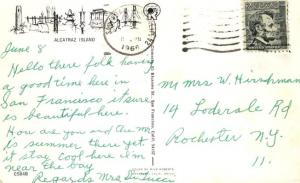 ALCATRAZ ISLAND
June 8
Hello there folk having
a good time here in
San Francisco it sure
is beautiful here.
How are you and the Mr
is summer there yet
it stay cool here I'm
near the bay
Regards Mrs
1966
Mr Mrs W. Hirschman
14 Loderdale Rd
Rochester N.Y.
11.
C5848